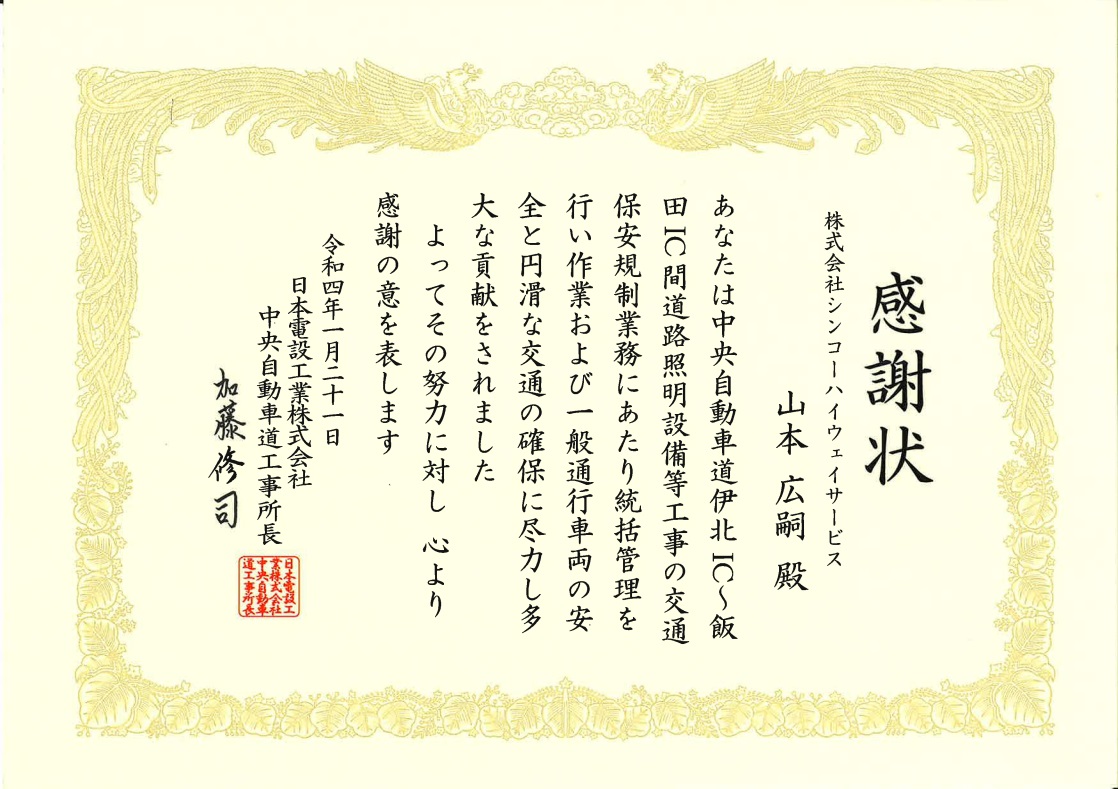 感謝状
株式会社シンコーハイウェイサービス
山本 広嗣 殿
あなたは中央自動車道伊北IC～飯
田IC間道路照明設備等工事の交通
保安規制業務にあたり統括管理を
行い作業および一般通行車両の安
全と円滑な交通の確保に尽力し多
大な貢献をされました
よってその努力に対し 心より
感謝の意を表します
令和四年一月二十一日
日本電設工業株式会社
中央自動車道工事所長
加藤修司
日本電設工
業株式会社
中央自動車
道工事所長